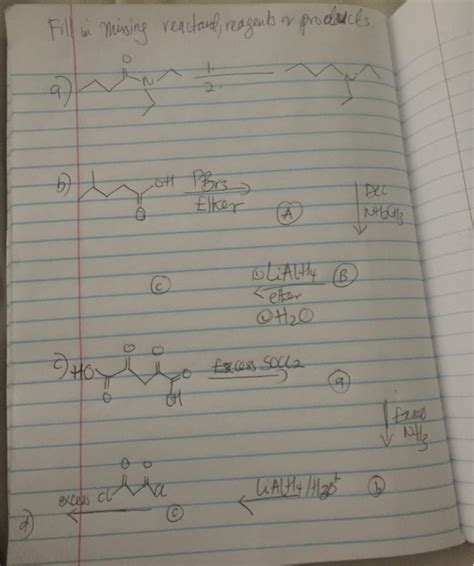 Fill in missing reactant, reagents or products.
a) O N 1. 2.
b) OH O PBr3 Ether A DCC NH2CH3
C ① LiAlH4 ether ② H2O B
c) HO O O O O OH Excess SOCl2 a
Excess NH3
d) excess Cl O O Cl C LiAlH4/H3O+ b